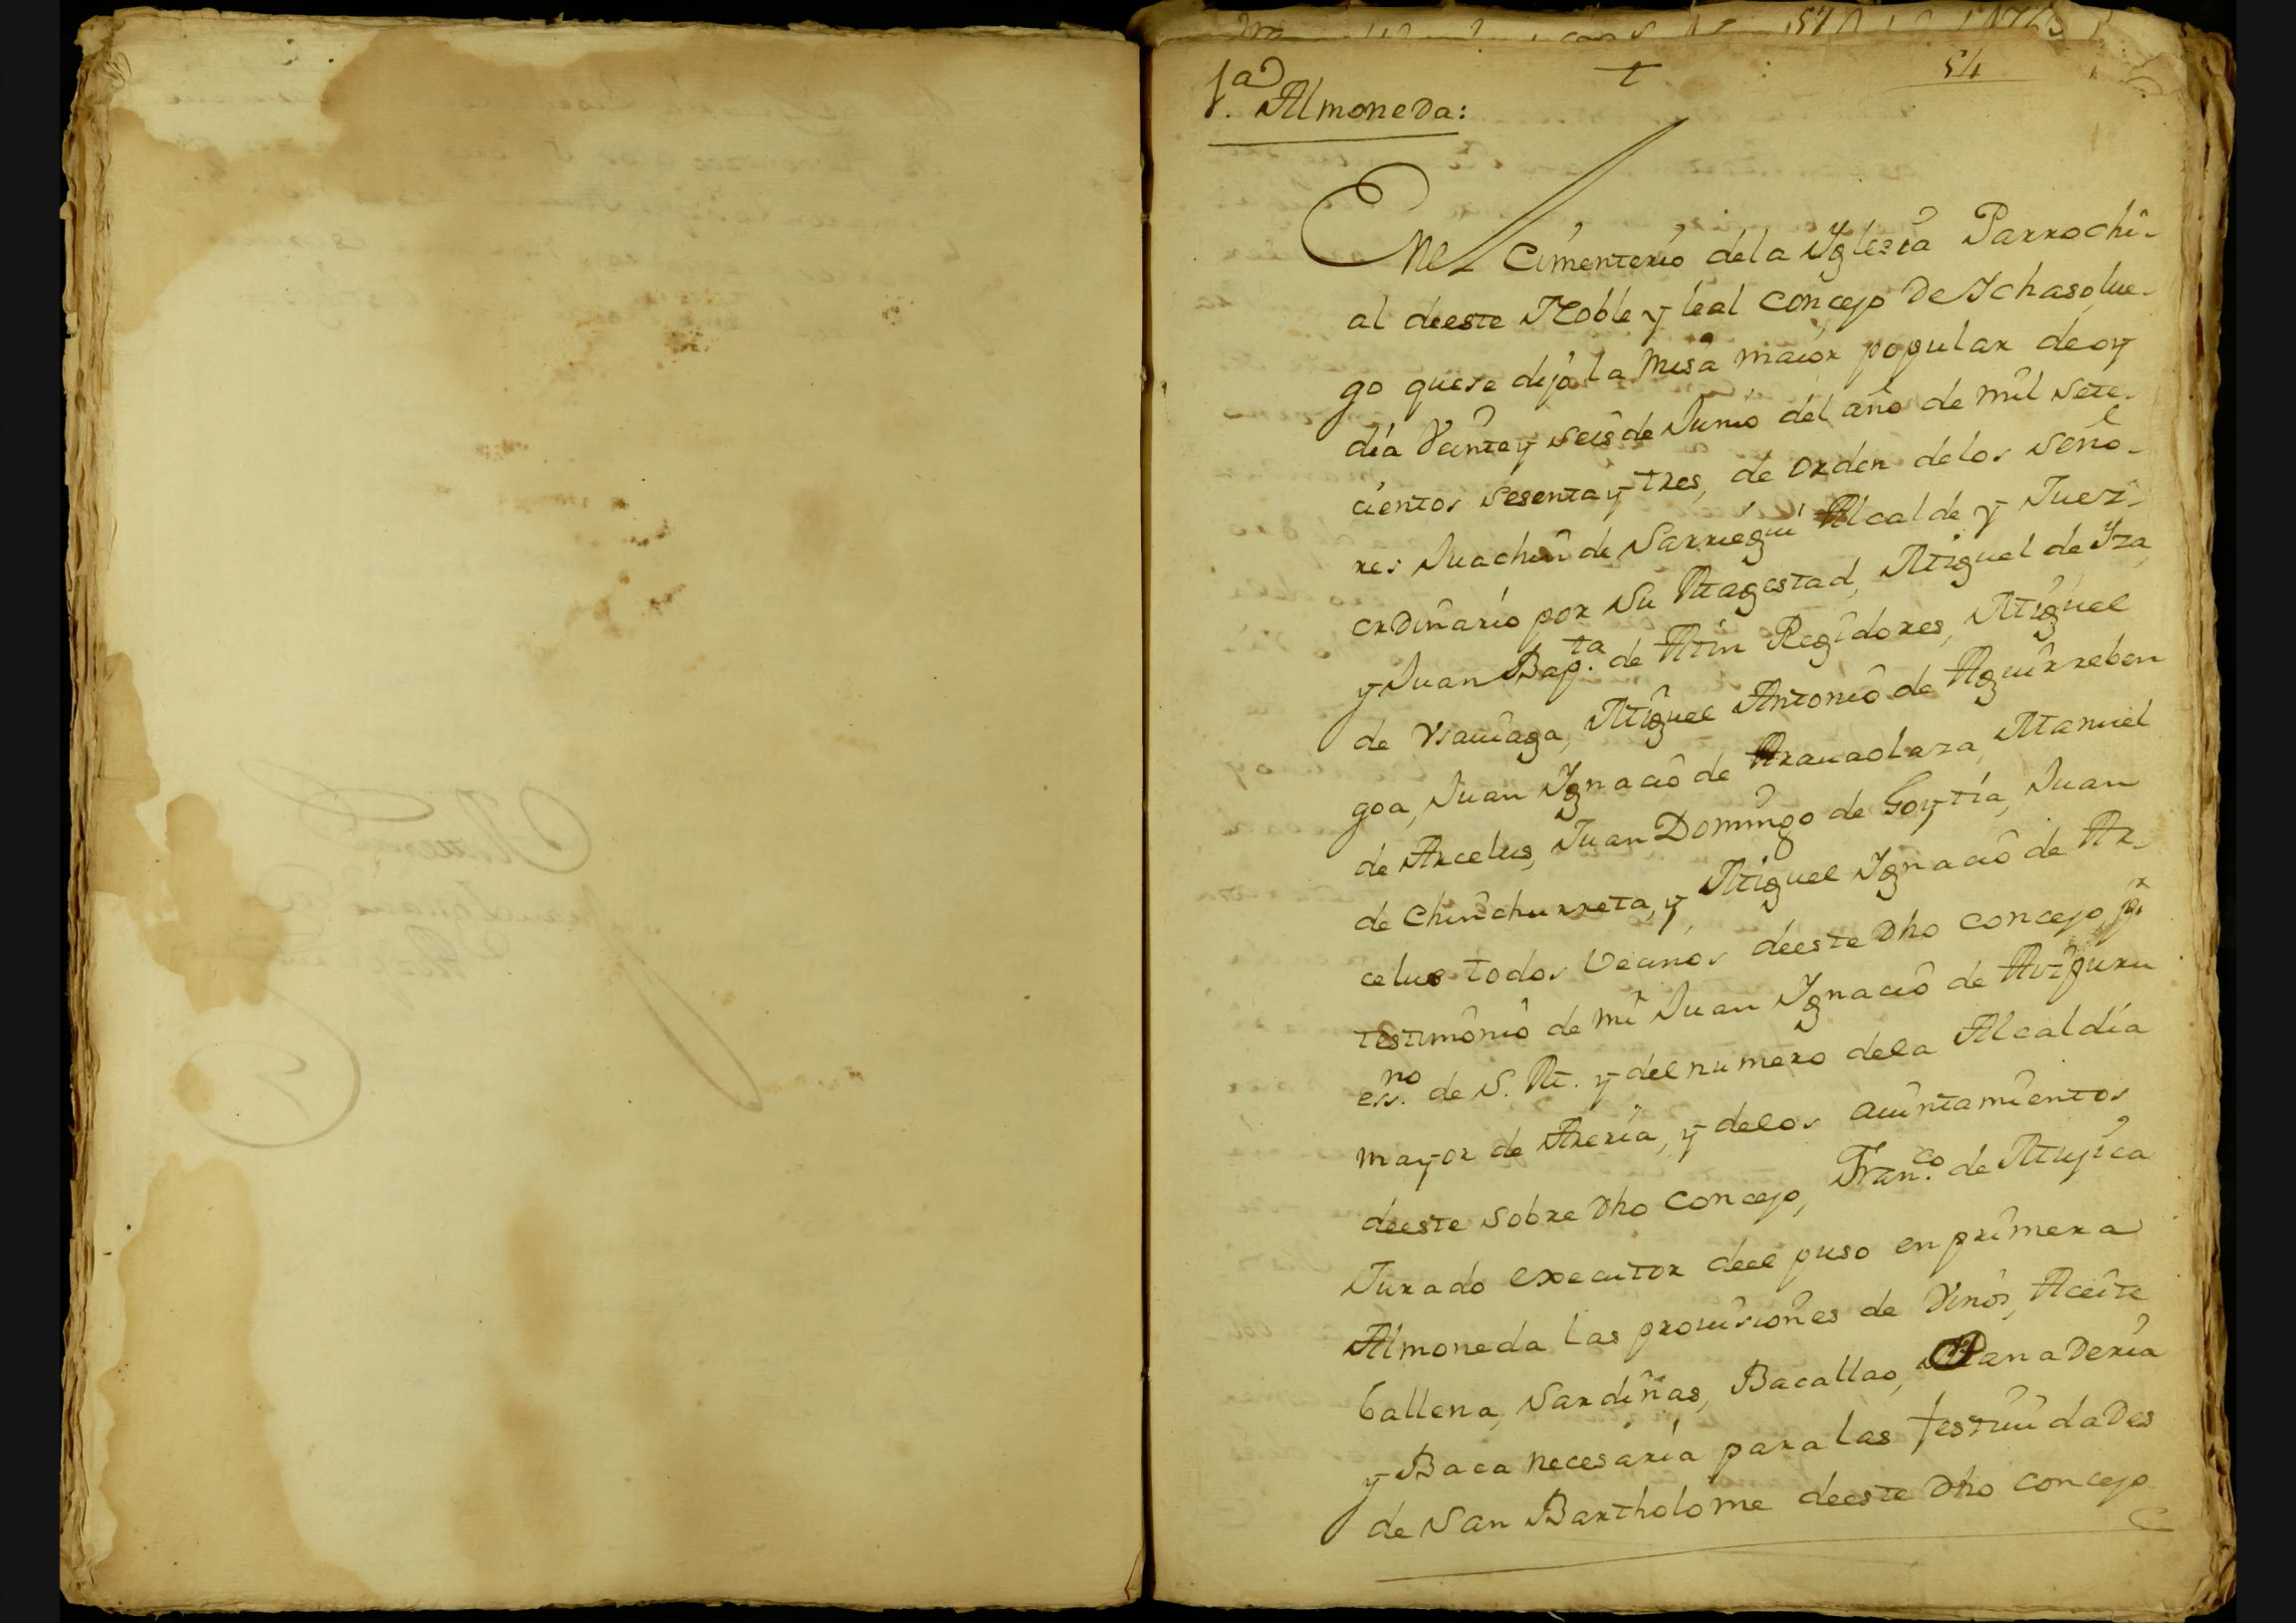 54
1.a Almoneda:
En el Cimenterio dela Yglesia Parrochi-
al deeste Noble y leal concejo De Ychaso, lue-
go quese dijo la Misa maior popular de oy
dia Veinte y seis de Junio del año de mil sete-
cientos sesenta y tres, de orden delos Seño-
res Juachin de Sarriegui Alcalde y Juez
ordinario por Su Magestad, Miguel de Yza
y Juan Bap.ta de Atin Regidores, Miguel
de Vsauiaga, Miguel Antonio de Aguirreben
goa, Juan Ygnacio de Aranaolaza, Manuel
de Arcelus, Juan Domingo de Goytia, Juan
de Chinchurreta, y Miguel Ygnacio de Ar-
celus todos Vecinos deeste Dho concejo, pr
testimonio de mi Juan Ygnacio de Aizpuru
ess.no de S. M. y del numero dela Alcaldia
mayor de Areria, y delos aiuntamientos
deeste sobre Dho Concejo, Fran.co de Mujica
Jurado executor deel puso en primera
Almoneda las prouisiones de Vinos, Aceite
ballena, Sardinas, Bacallao, Panaderia
y Baca necesaria para las festiuidades
de San Bartholome deeste Dho concejo